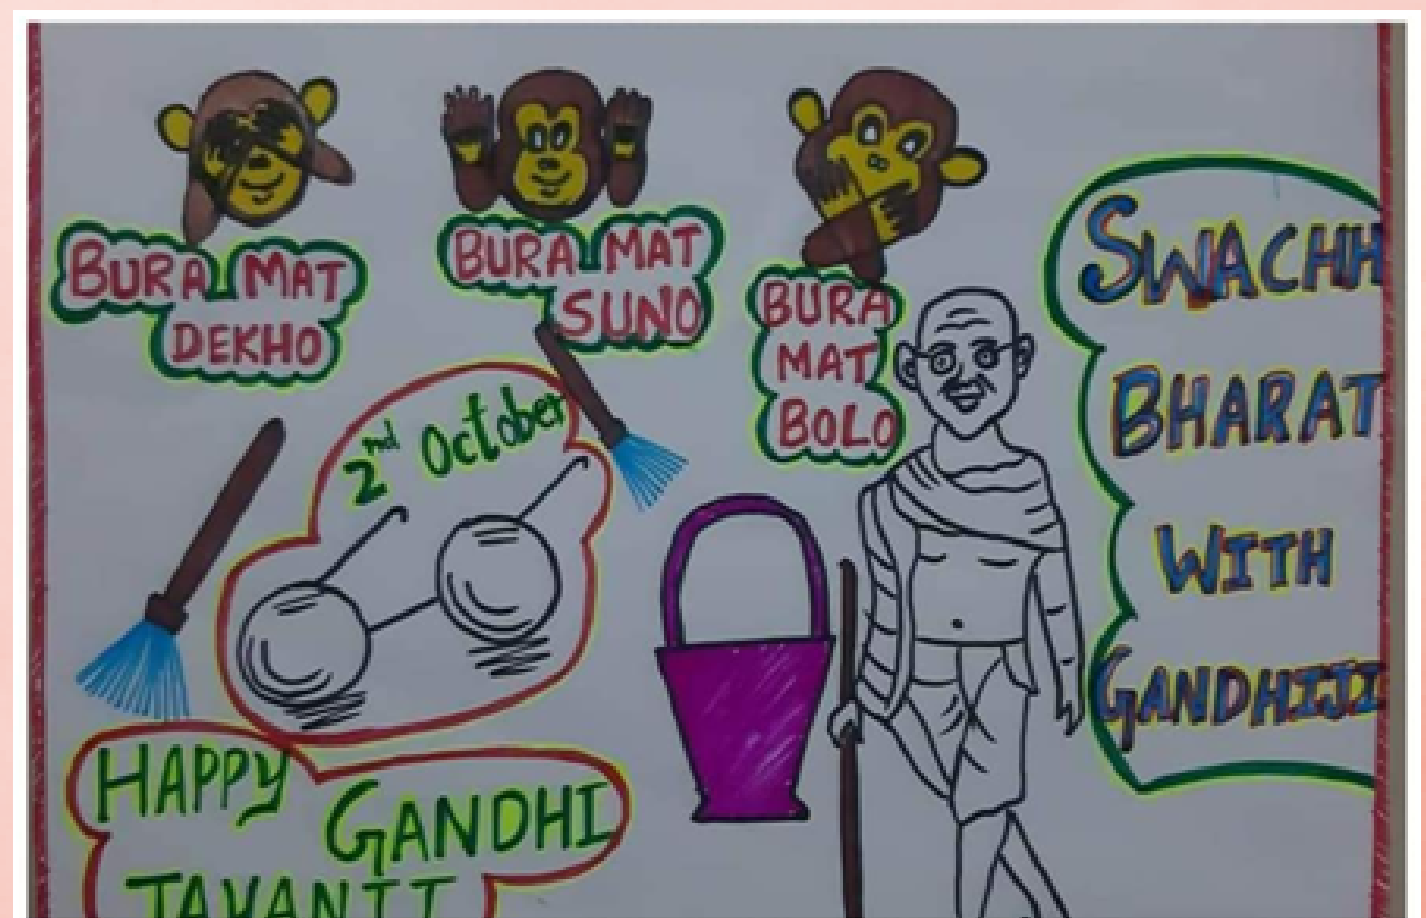 BURA MAT
DEKHO
BURA MAT
SUNO
BURA
MAT
BOLO
SWACHH
BHARAT
WITH
GANDHIJI
2nd October
HAPPY
GANDHI
JAYANTI